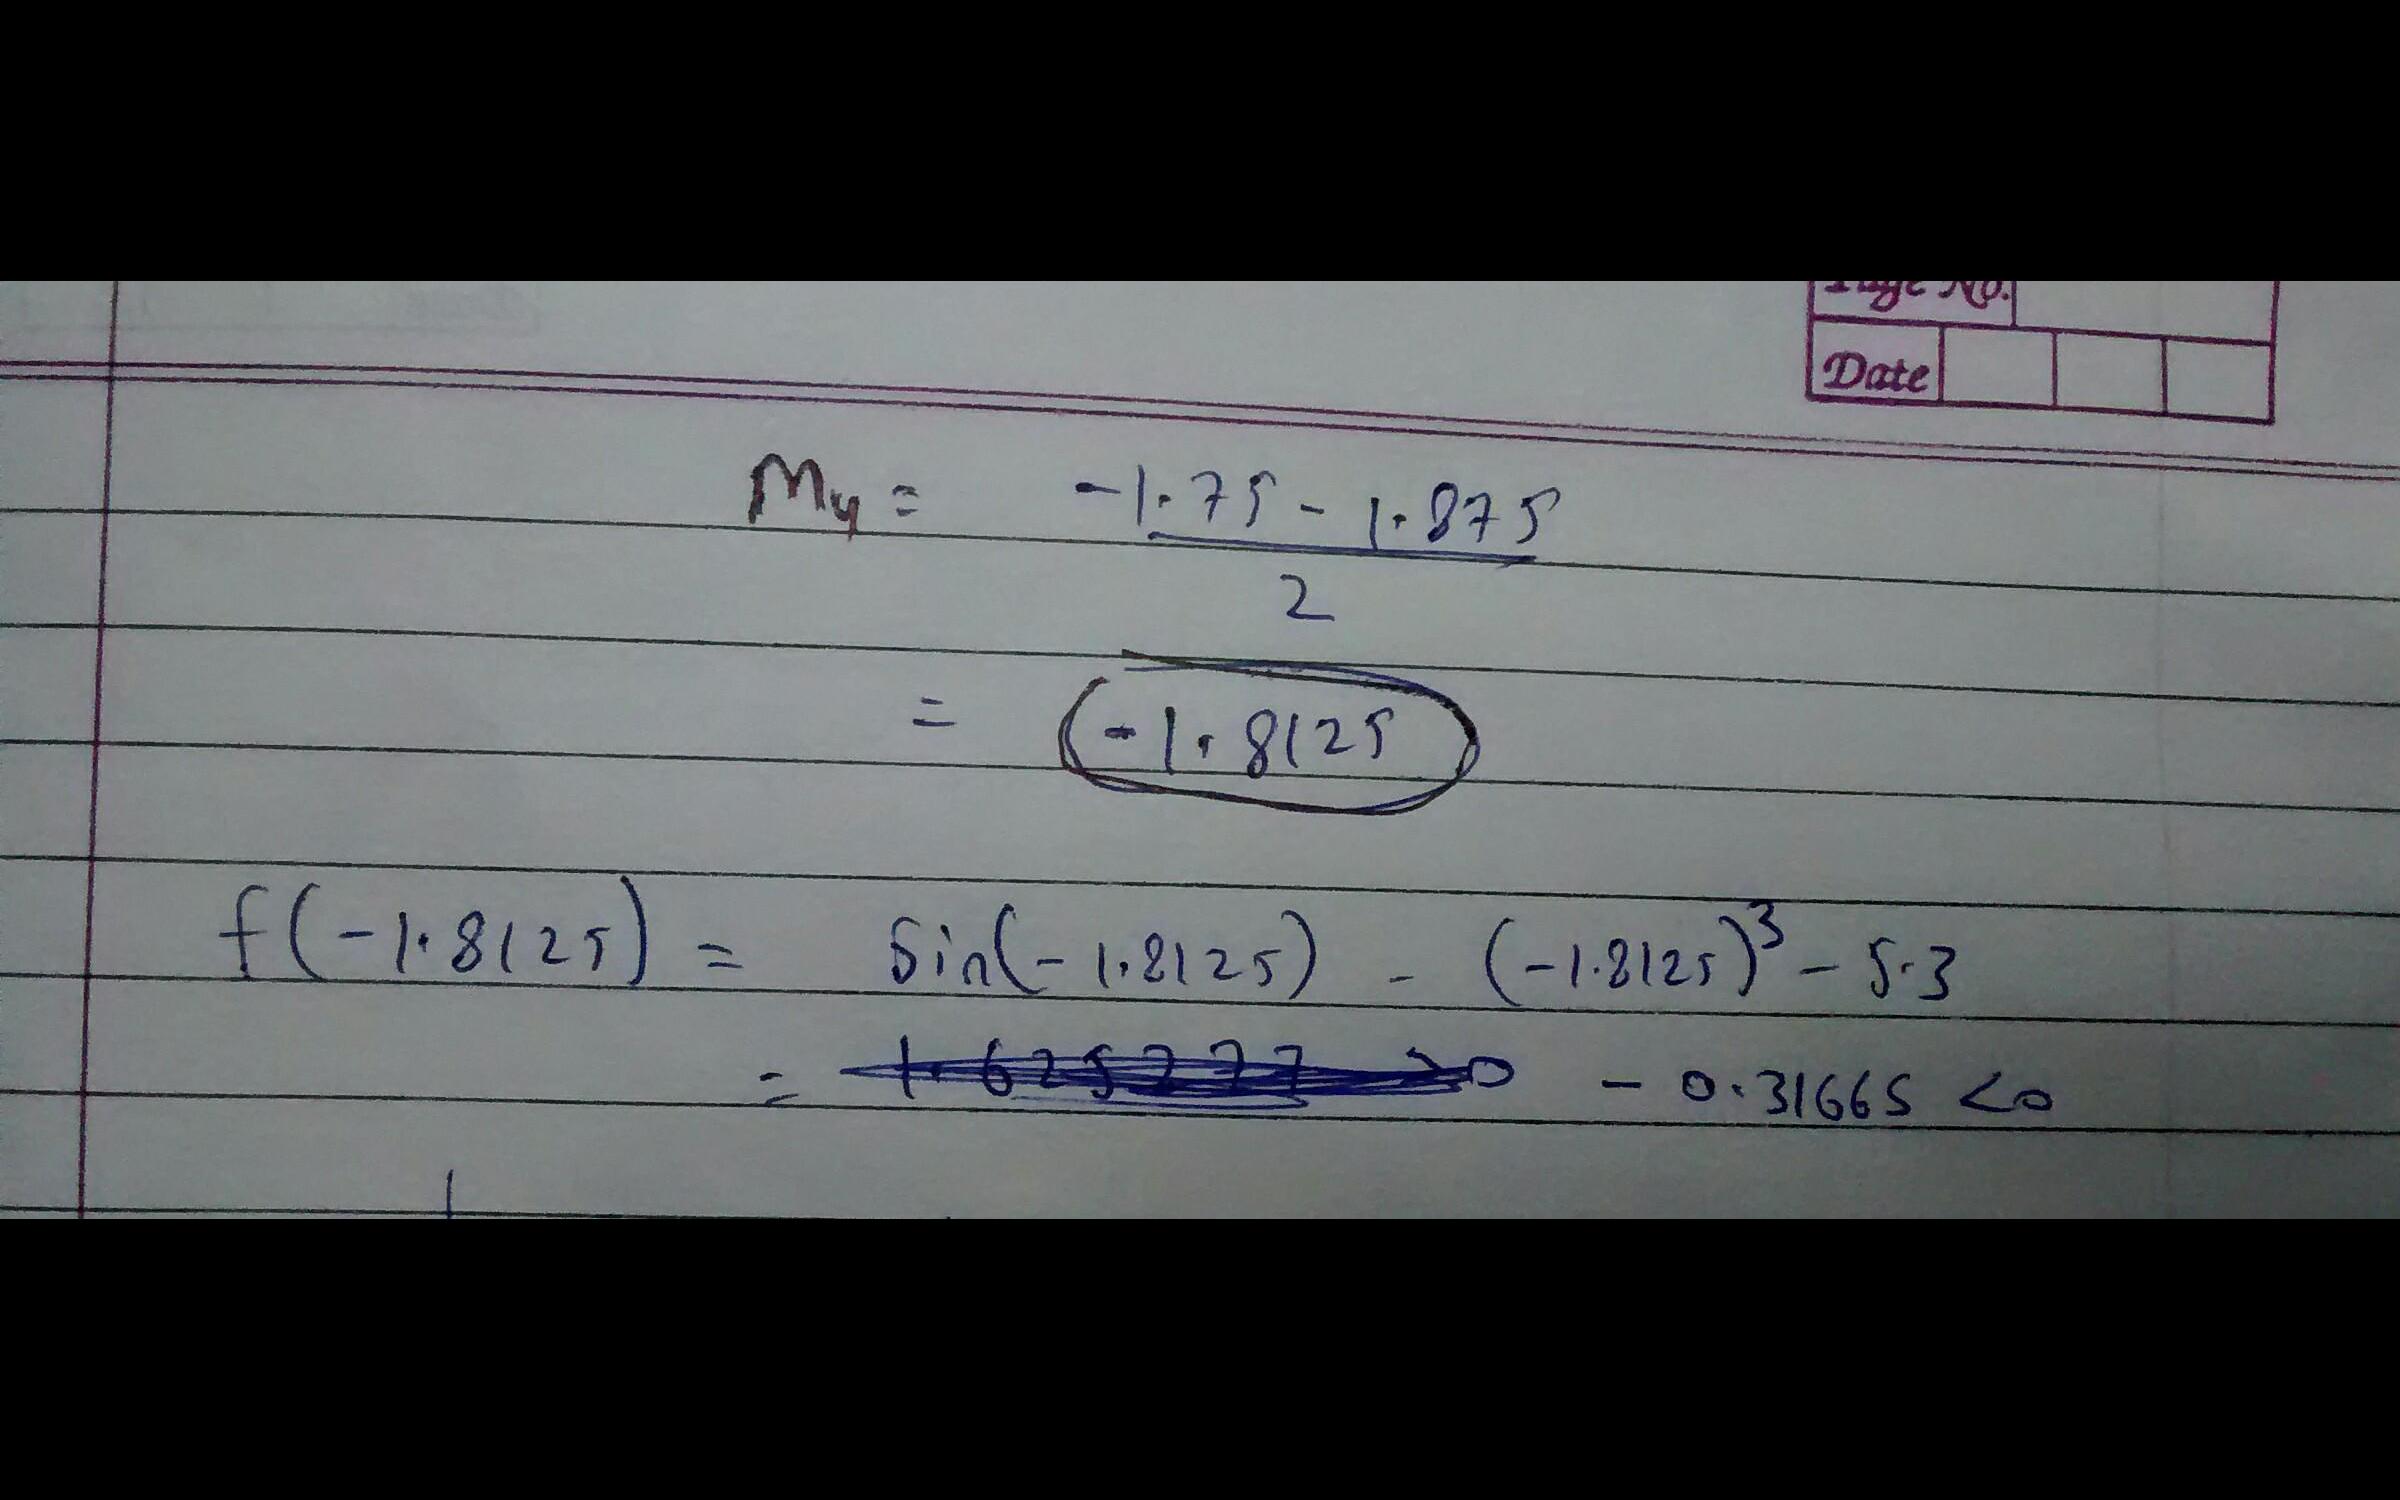 Page No.
Date
M4 = -1.75 - 1.875
2
= -1.8125
f(-1.8125) = Sin(-1.8125) - (-1.8125)³ - 5.3
= 1.625277 >0 - 0.31665 <0